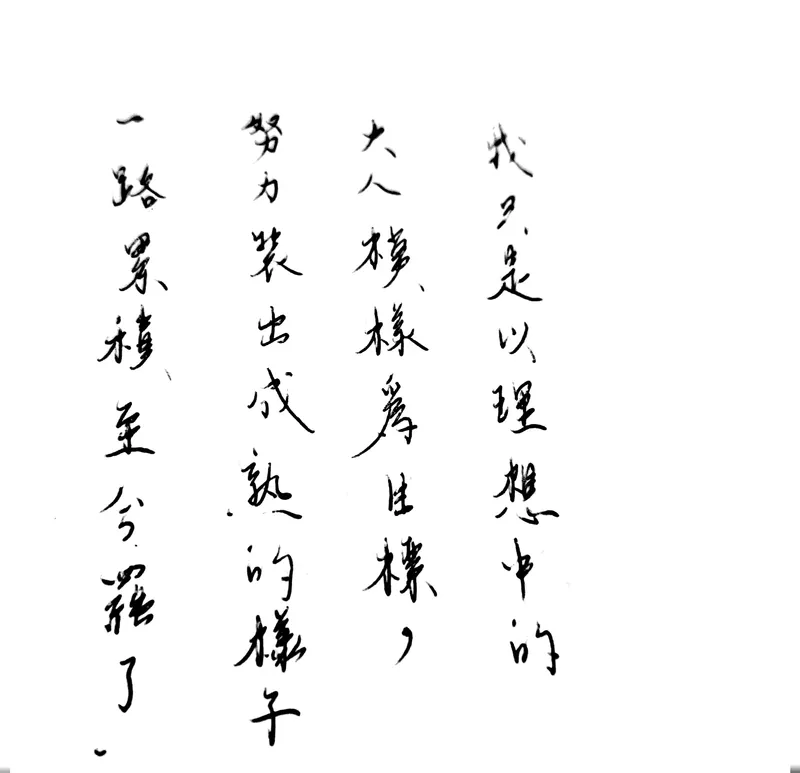 我只是以理想中的
大人模樣為目標，
努力裝出成熟的樣子
一路累積至今罷了。